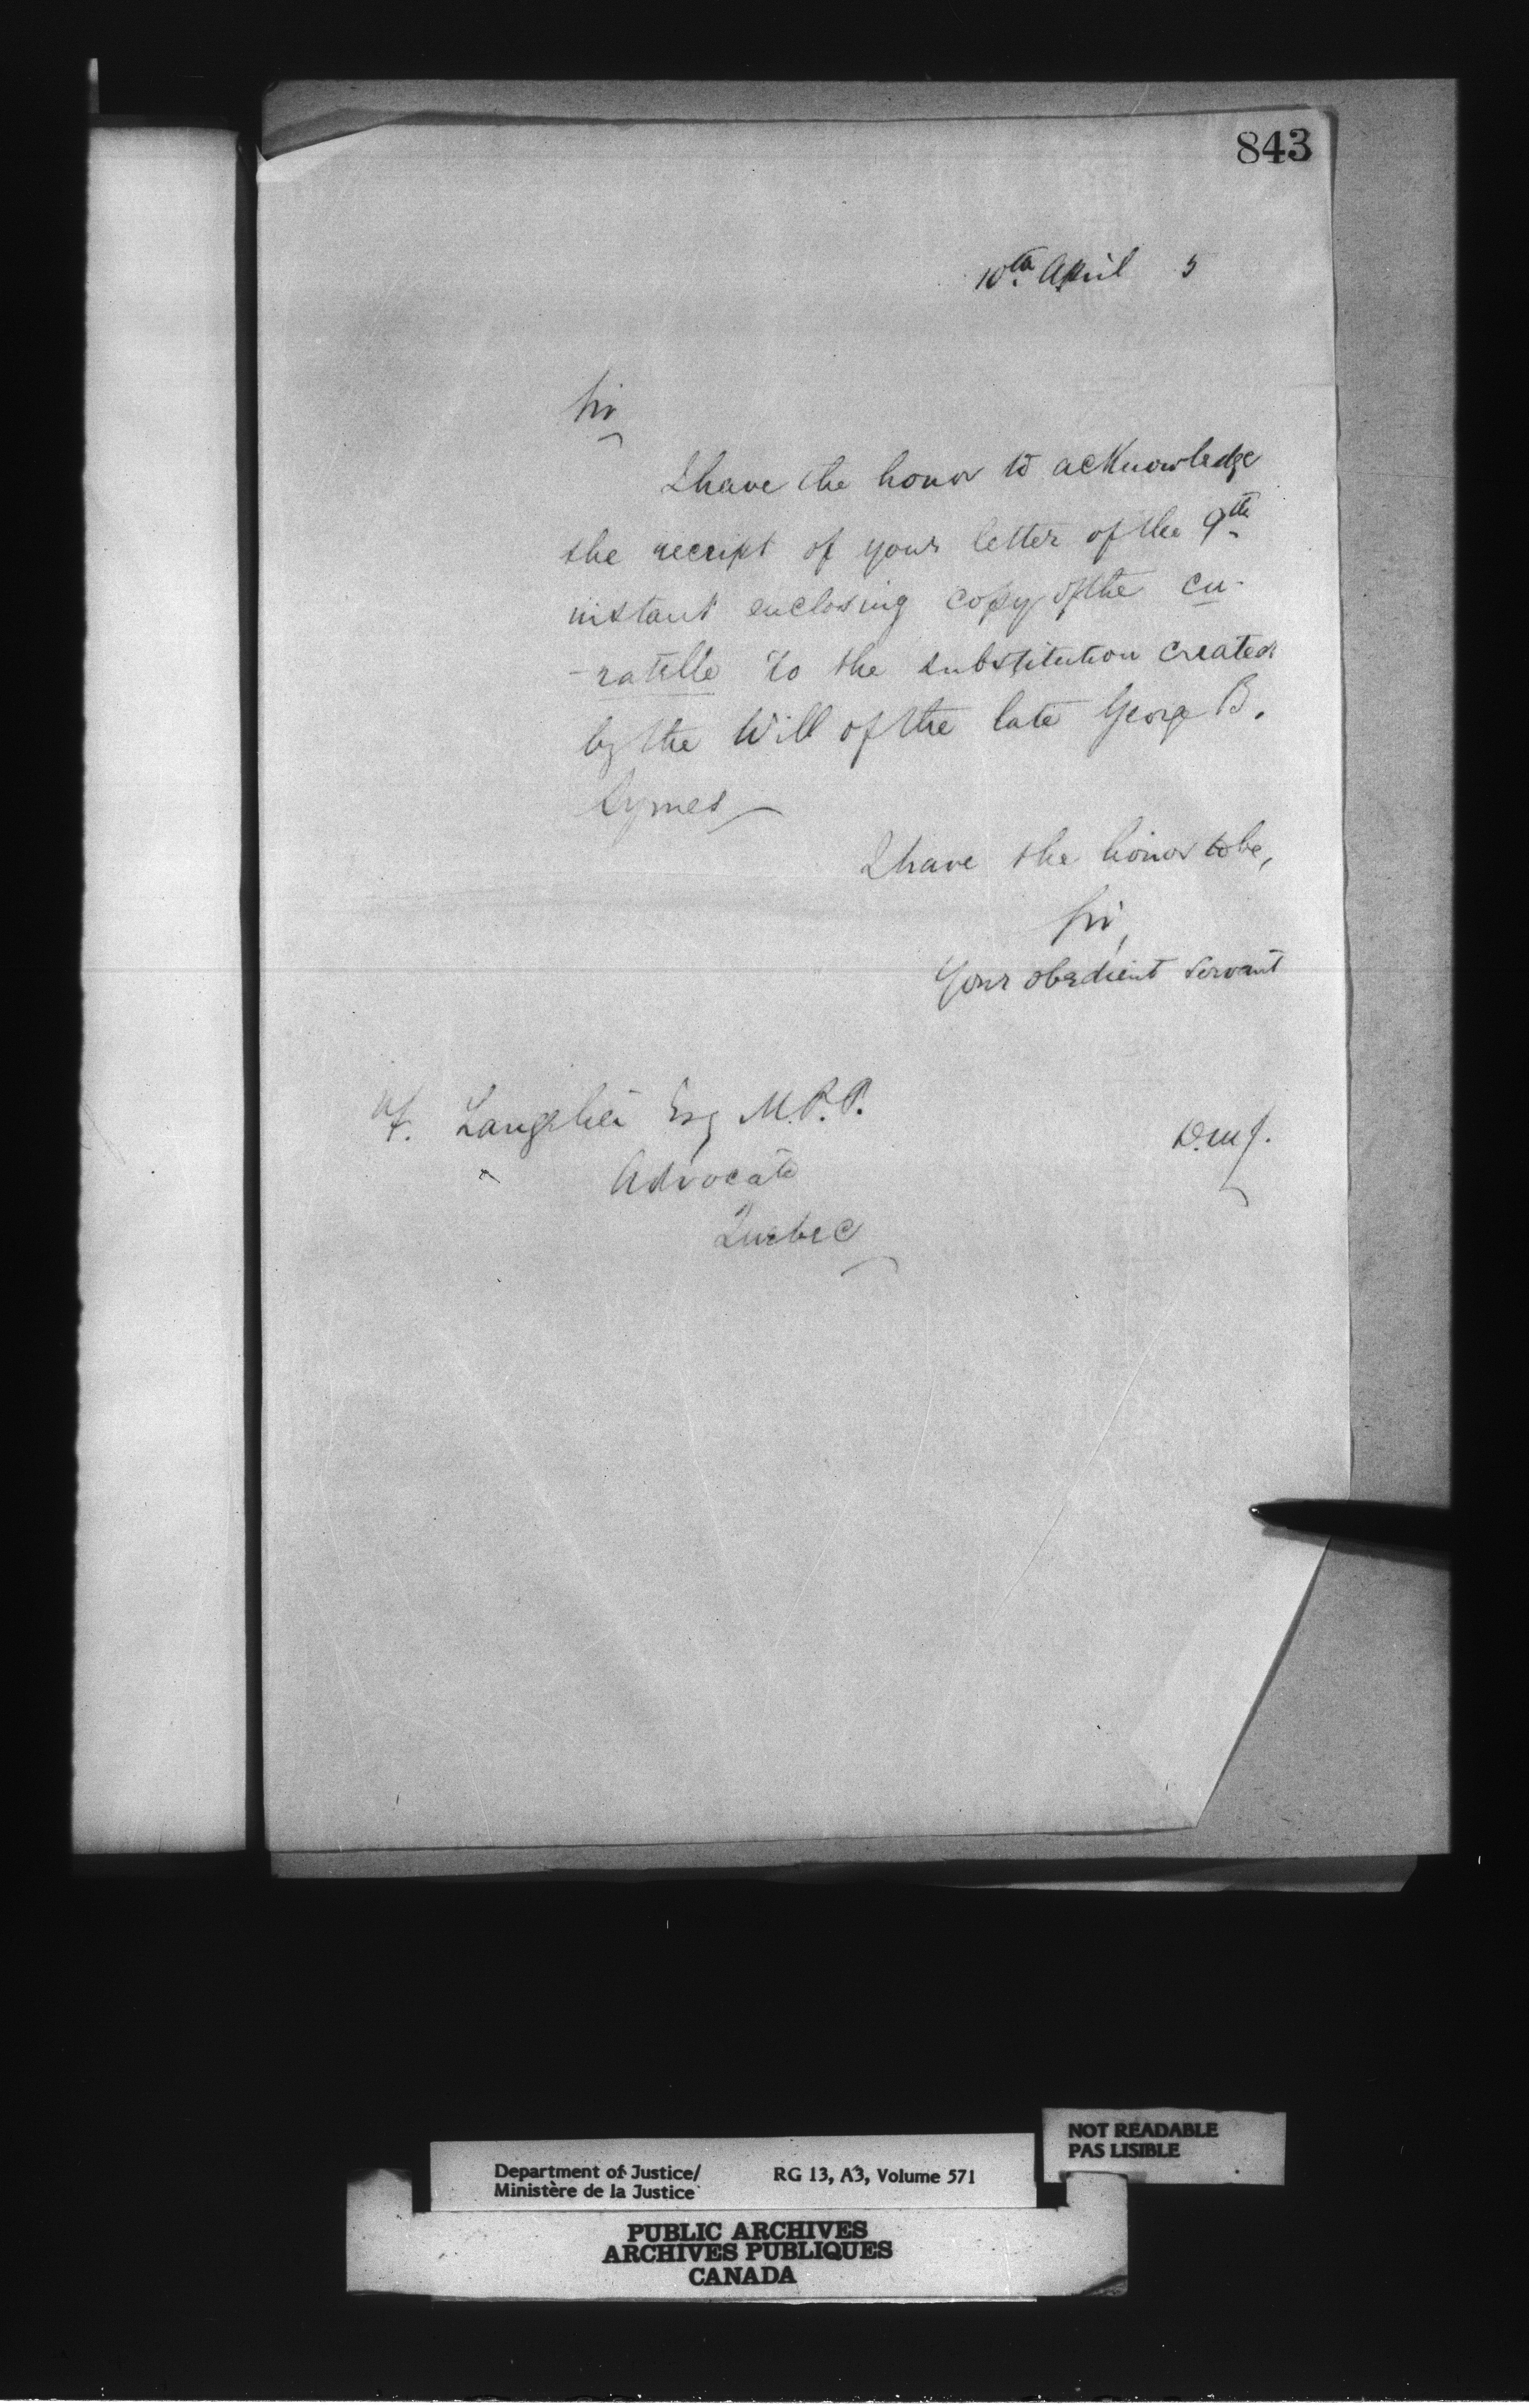 843
10th April 5
Sir
I have the honor to acknowledge
the receipt of your letter of the 9th
instant enclosing copy of the cu-
-ratelle to the substitution created
by the Will of the late George B.
Symes
I have the honor to be,
Sir,
Your obedient servant
F. Langelier Esq M.P.P.
Advocate
Quebec
D.M.J.
NOT READABLE
PAS LISIBLE
Department of Justice/ RG 13, A3, Volume 571
Ministère de la Justice
PUBLIC ARCHIVES
ARCHIVES PUBLIQUES
CANADA